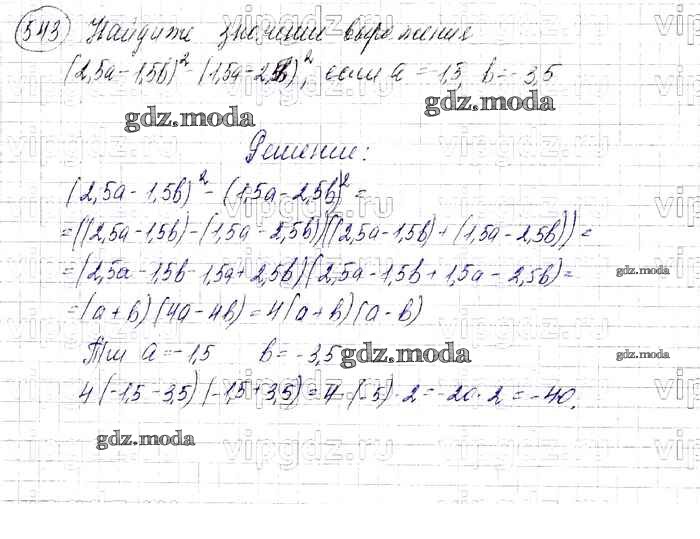 543 Найдите значение выражения
(2,5a-1,5b)² - (1,5a-2,5b)², если a = -1,5, b = -3,5
gdz.moda
gdz.moda
Решение:
(2,5a-1,5b)² - (1,5a-2,5b)² =
=((2,5a-1,5b)-(1,5a-2,5b))((2,5a-1,5b)+(1,5a-2,5b))=
=(2,5a-1,5b-1,5a+2,5b)(2,5a-1,5b+1,5a-2,5b)=
gdz.moda
=(a+b)(4a-4b)=4(a+b)(a-b)
При a=-1,5 b=-3,5
gdz.moda
gdz.moda
4(-1,5-3,5)(-1,5+3,5)=4·(-5)·2=-20·2=-40.
gdz.moda
vipgdz.ru